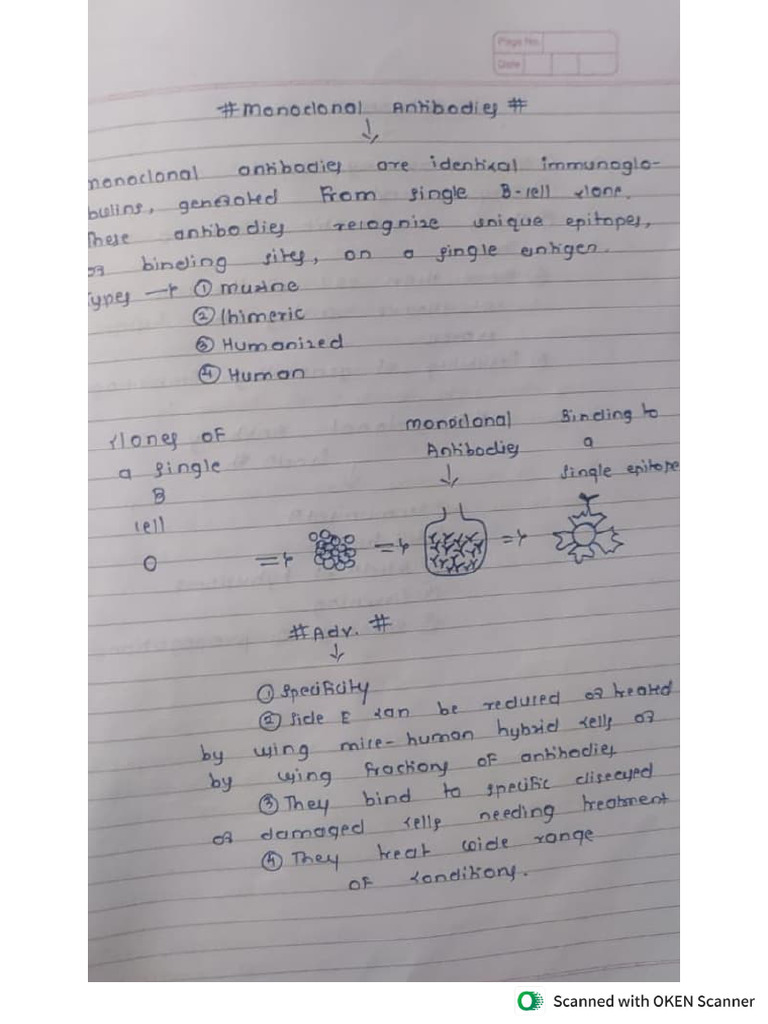 Page No.
Date
# Monoclonal Antibodies #
monoclonal antibodies are identical immunoglo-
bulins, generated From single B-cell clone.
These antibodies recognize unique epitopes,
or binding sites, on a single antigen.
Types → ① murine
② Chimeric
③ Humanized
④ Human
clones of
a single
B
cell
monoclonal
Antibodies
Binding to
a
single epitope
# Adv. #
① Specificity
② Side E can be reduced or treated
by using mice-human hybrid cells or
by using fractions of antibodies
③ They bind to specific diseased
or damaged cells needing treatment
④ They treat wide range
of conditions.
Scanned with OKEN Scanner